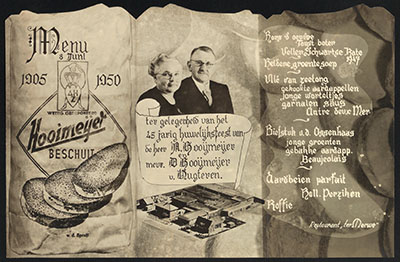 Menu
8 Juni
1905 1950
Hooimeijer
BESCHUIT
ter gelegenheid van het
45 jarig huwelijksfeest van
de heer A. Hooijmeijer
mevr. D. Hooijmeijer
v. Vugteren.
Toast boter
Heldere groentesoep
1949
Vlie van zeetong
gekookte aardappelen
jonge worteltjes
garnalen
Entre deux Mer
Biefstuk a.d. Ossenhaas
jonge groenten
gebakke aardapp.
Beaujolais
Aardbeien parfait
Holl. Perziken
Koffie
Restaurant